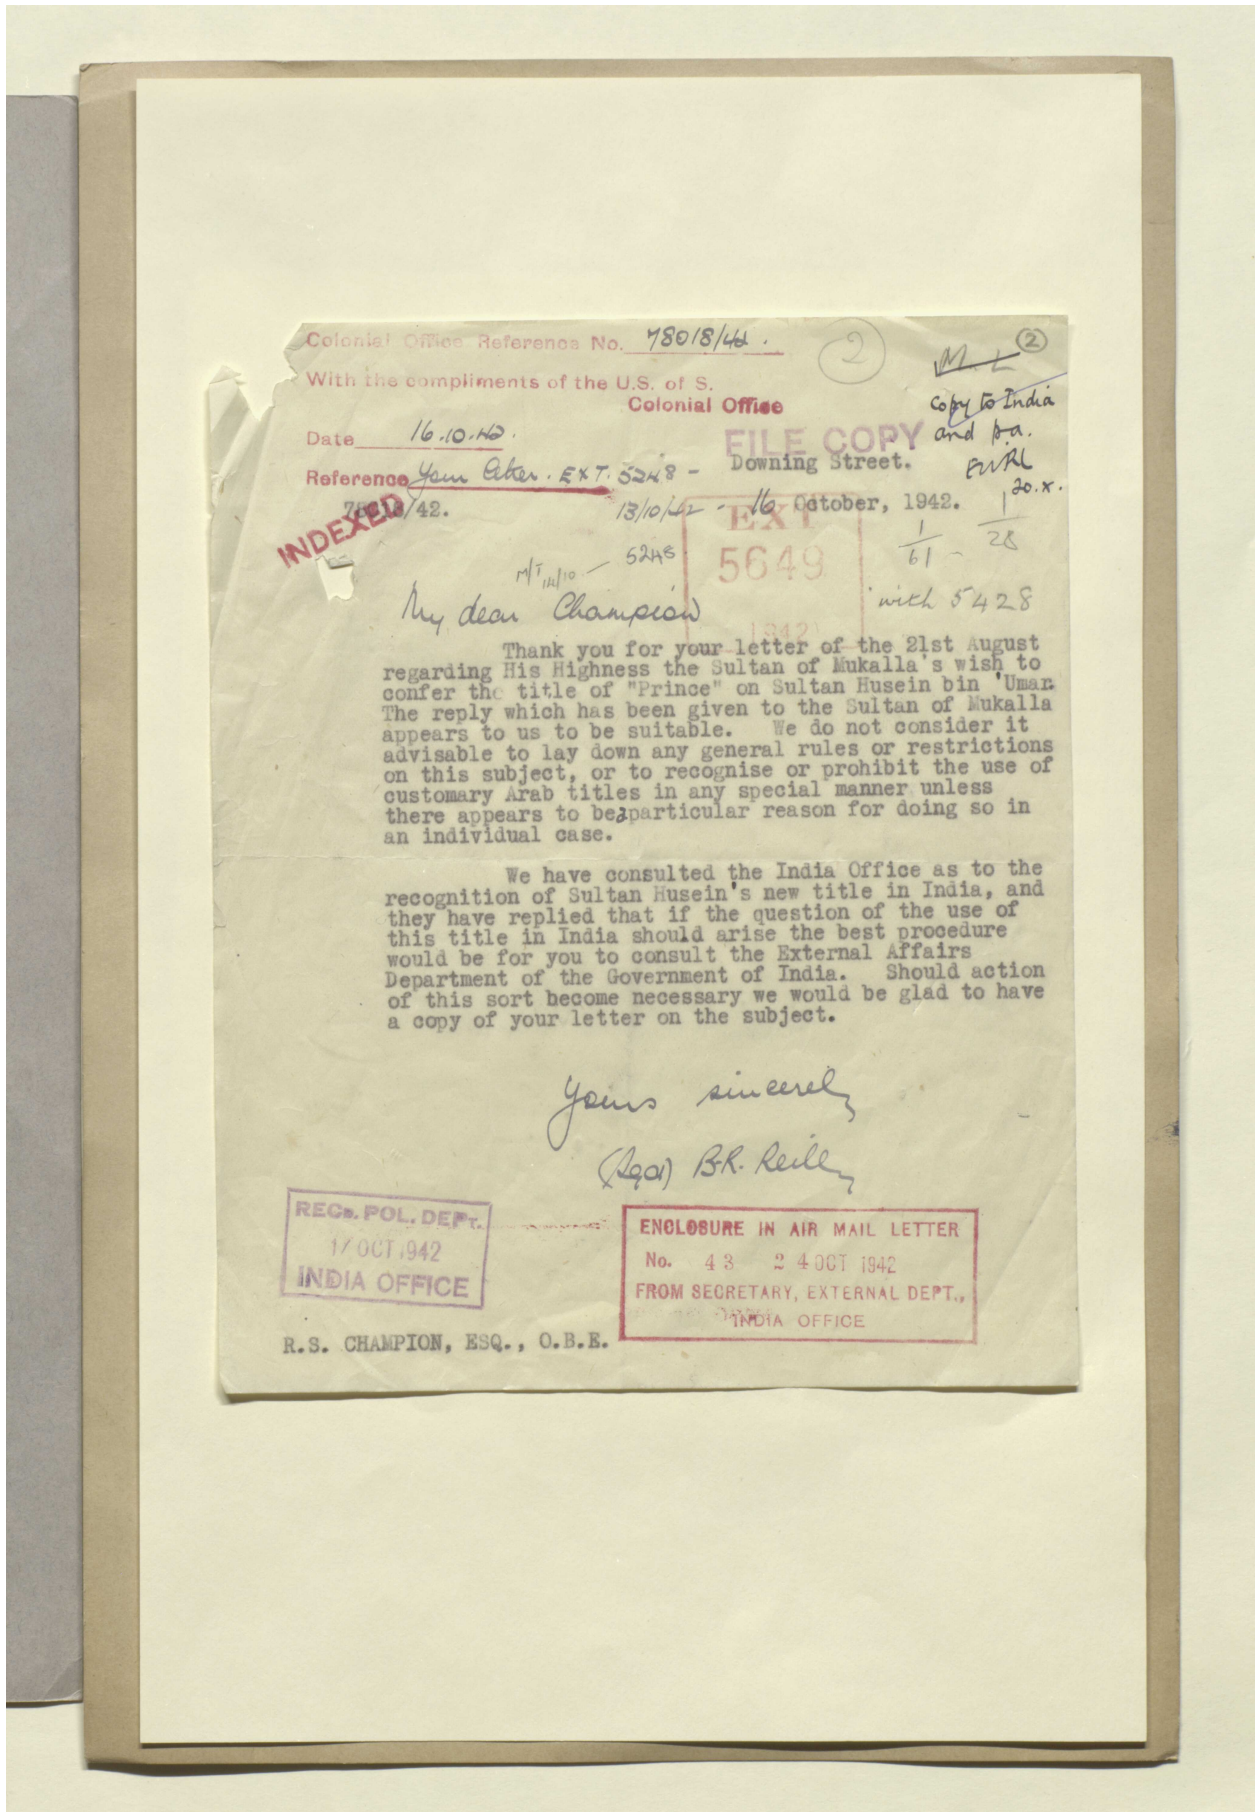 Colonial Office Reference No. 78018/42.
2
2
With the compliments of the U.S. of S.
Colonial Office
Copy to India
and p.a.
20.x.
Date 16.10.42.
FILE COPY
Downing Street.
Reference Your letter. EXT. 5248 -
13/10/42 -
INDEXED
78018/42.
16 October, 1942.
1/61 -
1/28
EXT
5649
1942
5248
M/T 14/10 -
with 5428
My dear Champion
Thank you for your letter of the 21st August
regarding His Highness the Sultan of Mukalla's wish to
confer the title of "Prince" on Sultan Husein bin 'Umar.
The reply which has been given to the Sultan of Mukalla
appears to us to be suitable. We do not consider it
advisable to lay down any general rules or restrictions
on this subject, or to recognise or prohibit the use of
customary Arab titles in any special manner unless
there appears to be a particular reason for doing so in
an individual case.
We have consulted the India Office as to the
recognition of Sultan Husein's new title in India, and
they have replied that if the question of the use of
this title in India should arise the best procedure
would be for you to consult the External Affairs
Department of the Government of India. Should action
of this sort become necessary we would be glad to have
a copy of your letter on the subject.
Yours sincerely
(Sgd) B.R. Reilly
RECD. POL. DEPT.
17 OCT 1942
INDIA OFFICE
ENCLOSURE IN AIR MAIL LETTER
No. 43 24 OCT 1942
FROM SECRETARY, EXTERNAL DEPT.,
INDIA OFFICE
R.S. CHAMPION, ESQ., O.B.E.